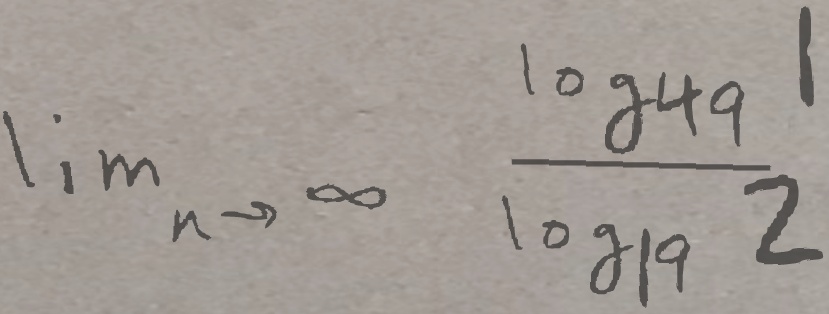 lim n→∞ log49 1
log19 2